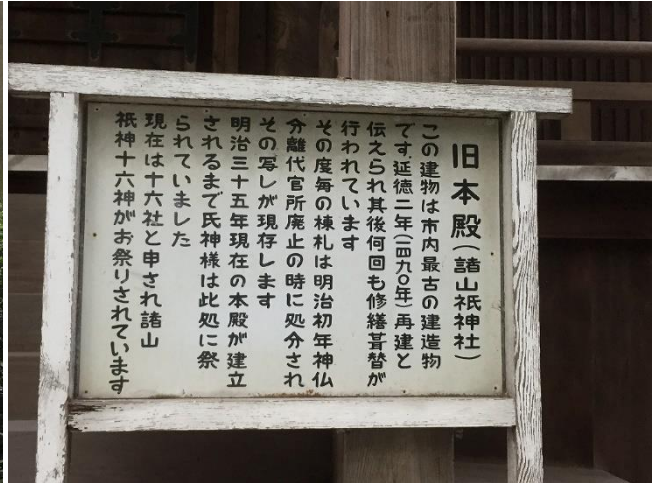 旧本殿(諸山祇神社)
この建物は市内最古の建造物
です延徳二年(一四九〇年)再建と
伝えられ其後何回も修繕葺替が
行われています
その度毎の棟札は明治初年神仏
分離代官所廃止の時に処分され
その写しが現存します
明治三十五年現在の本殿が建立
されるまで氏神様は此処に祭
られていました
現在は十六社と申され諸山
祇神十六神がお祭りされています